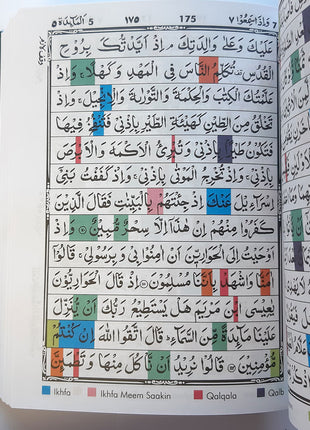 ٥ اَلْمَآئِدَة 5 ١٧٥ 175 وَاِذَا سَمِعُوْا ٧ 7
عَلَيْكَ وَعَلٰى وَالِدَتِكَ ۘ اِذْ اَيَّدْتُّكَ بِرُوْحِ
الْقُدُسِ ۫ تُكَلِّمُ النَّاسَ فِى الْمَهْدِ وَكَهْلًا ۚ وَاِذْ
عَلَّمْتُكَ الْكِتٰبَ وَالْحِكْمَةَ وَالتَّوْرٰىةَ وَالْاِنْجِيْلَ ۚ وَاِذْ
تَخْلُقُ مِنَ الطِّيْنِ كَهَيْئَةِ الطَّيْرِ بِاِذْنِىْ فَتَنْفُخُ فِيْهَا
فَتَكُوْنُ طَيْرًۢا بِاِذْنِىْ وَتُبْرِئُ الْاَكْمَهَ وَالْاَبْرَصَ
بِاِذْنِىْ ۚ وَاِذْ تُخْرِجُ الْمَوْتٰى بِاِذْنِىْ ۚ وَاِذْ كَفَفْتُ بَنِىْۤ
اِسْرَآءِيْلَ عَنْكَ اِذْ جِئْتَهُمْ بِالْبَيِّنٰتِ فَقَالَ الَّذِيْنَ
كَفَرُوْا مِنْهُمْ اِنْ هٰذَاۤ اِلَّا سِحْرٌ مُّبِيْنٌ ۝ وَاِذْ
اَوْحَيْتُ اِلَى الْحَوَارِيّٖنَ اَنْ اٰمِنُوْا بِىْ وَبِرَسُوْلِىْ ۚ قَالُوْۤا
اٰمَنَّا وَاشْهَدْ بِاَنَّنَا مُسْلِمُوْنَ ۝ اِذْ قَالَ الْحَوَارِيُّوْنَ
يٰعِيْسَى ابْنَ مَرْيَمَ هَلْ يَسْتَطِيْعُ رَبُّكَ اَنْ يُّنَزِّلَ
عَلَيْنَا مَآئِدَةً مِّنَ السَّمَآءِ ؕ قَالَ اتَّقُوا اللّٰهَ اِنْ كُنْتُمْ
مُّؤْمِنِيْنَ ۝ قَالُوْا نُرِيْدُ اَنْ نَّاْكُلَ مِنْهَا وَتَطْمَئِنَّ
Ikhfa Ikhfa Meem Saakin Qalqala Qalb